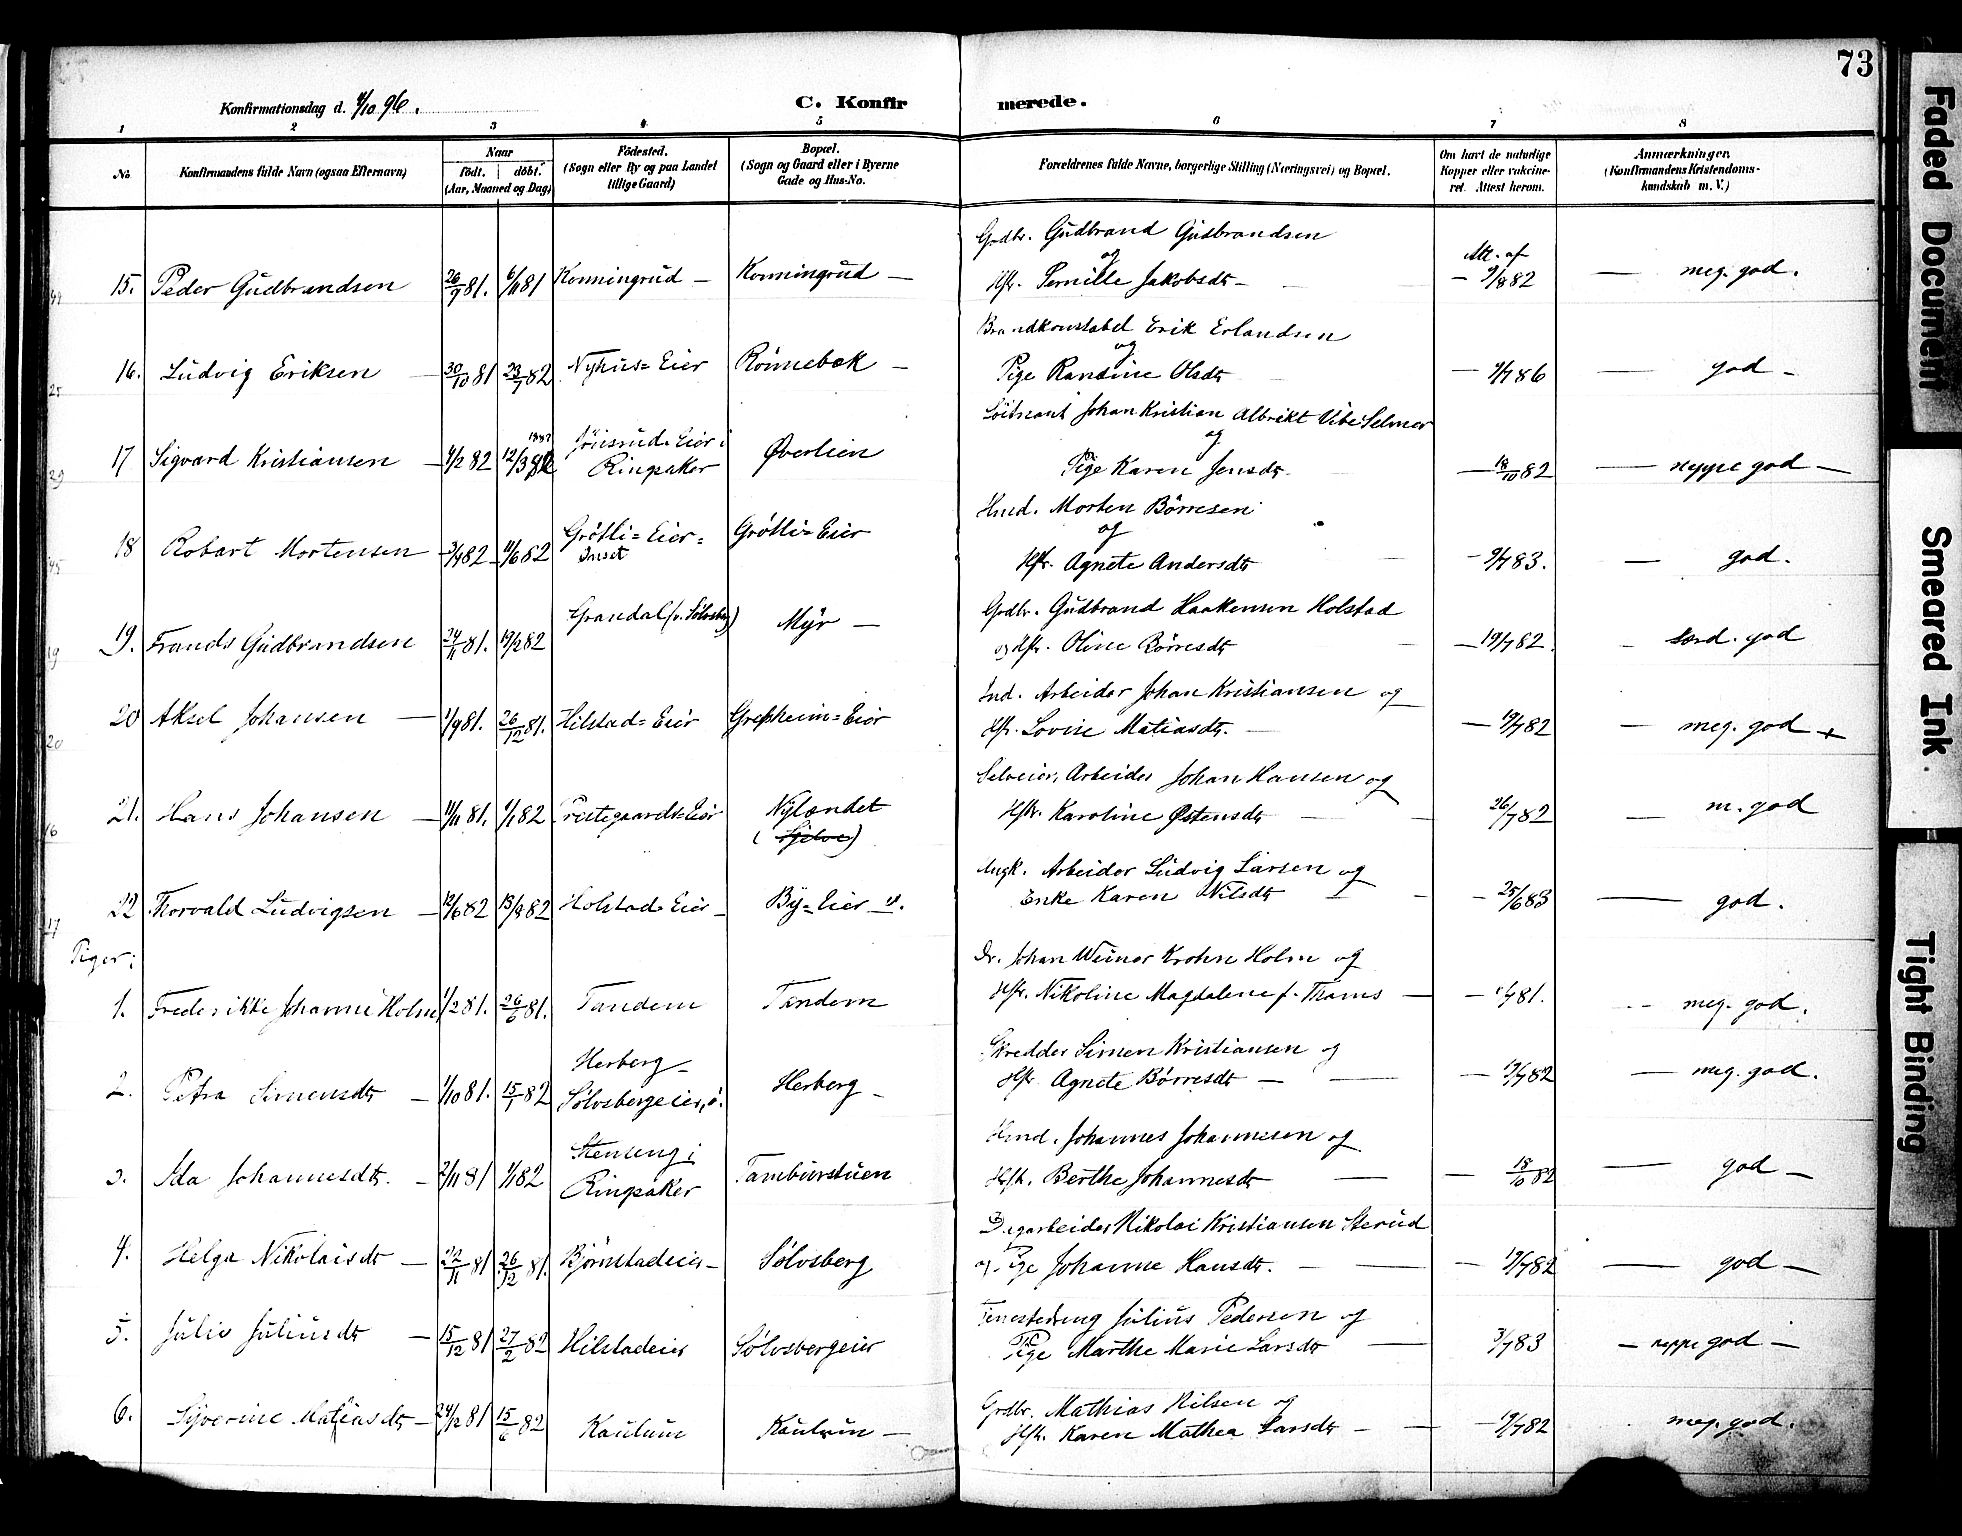 73
Konfirmationsdag d. 4/10 96.
C. Konfirmerede.
1 2 3 4 5 6 7 8
No
Konfirmandens fulde Navn (ogsaa Efternavn)
Naar
födt. döbt.
(Aar, Maaned og Dag)
Födested.
(Sogn eller By og paa Landet
tillige Gaard)
Bopæl.
(Sogn og Gaard eller i Byerne
Gade og Hus-No.
Forældrenes fulde Navne, borgerlige Stilling (Næringsvei) og Bopæl.
Om havt de naturlige
Kopper eller vakcine-
ret. Attest herom.
Anmærkninger.
(Konfirmandens Kristendoms-
kundskab m. V.)
Gdbr. Gudbrand Gudbrandsen
og
Att. af
15. Peder Gudbrandsen 26/9 81. 6/11 81 Konningrud — Konningrud — Hstr. Pernille Jakobsdtr — 9/8 82 — meg. god.
Brandkonstabel Erik Erlandsen
og
16. Ludvig Eriksen — 30/10 81 23/1 82 Nyhus=Eier Rönnebæk — Pige Randine Olsdtr — 9/7 86 — god —
Löitnant Johan Kristian Albrikt Vibe Selmer
og
17 Sigvard Kristiansen — 4/2 82 12/3 82 Eier i
Ringsaker Øverlien Pige Karen Jensdtr — 18/10 82 — neppe god —
Hmd. Morten Börresen
og
18 Robart Mortensen 3/4 82 11/6 82 Grötli=Eier=
Grötli=Eier Hstr. Agnete Andersdtr — 9/7 83. — god.
Gdbr. Gudbrand Haakensen Holstad
19. Frands Gudbrandsen 24/11 81. 19/2 82 Grandal (v. Sølvsberg) Myr — og Hstr. Oline Börresdtr — 19/7 82. — særd. god
Ind. Arbeider Johan Kristiansen og
20 Aksel Johansen — 1/9 81. 26/12 81. Hilstad=Eier Grefsheim=Eier Hstr. Lovise Matiasdtr. — 19/7 82 — meg. god +
Selveier, Arbeider Johan Hansen og
21. Hans Johansen — 11/11 81. 1/1 82 Prestegaards=Eier Nylændet
(Gjelve) Hstr. Karoline Østensdtr — 26/7 82 — m. god
Ungk. Arbeider Ludvig Larsen og
22 Thorvald Ludvigsen — 12/6 82 13/8 82 Holstad=Eier — By=Eier v. Enke Karen Nilsdtr — 25/6 83 — god.
Piger:
Dr. Johan Werner Krohn Holm og
1. Frederikke Johanne Holm 1/2 81. 26/6 81. Tandem Tandem Hstr. Nikoline Magdalene f. Thams — 81. — meg. god.
Skredder Simen Kristiansen og
2. Petra Simensdtr — 1/10 81. 15/1 82 Herberg —
Sølvsbergeier, ö. Herberg — Hstr. Agnete Börresdtr — 19/7 82 — meg. god.
Hmd. Johannes Johannesen og
3. Ida Johannesdtr. — 2/11 81 1/1 82 Stenseng i
Ringsaker Tamburstuen Hstr. Berthe Johannesdtr — 18/10 82 — god —
Dagarbeider Nikolai Kristiansen Sterud
4. Helga Nikolaisdtr — 22/11 81 26/12 81. Björnstadeier — Sølvsberg og Pige Johanne Hansdtr. — 19/7 82 — god —
Tjenestedreng Julius Pedersen og
5. Julie Juliusdtr — 15/12 81 27/2 82 Hilstadeier Sølvsbergeier Pige Marthe Marie Larsdtr — 3/7 83 — neppe god —
Grdbr. Mathias Nilsen og
6. Syverine Matiasdtr — 24/12 81 15/ 82 Kaulum Kaulum — Hstr. Karen Mathea Larsdtr — 19/7 82 meg. god.
Faded Document
Smeared Ink.
Tight Binding